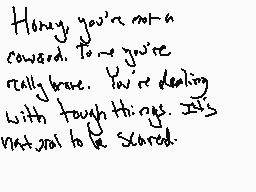 Honey, you're not a
coward. To me you're
really brave. You're dealing
with tough things. It's
natural to be scared.